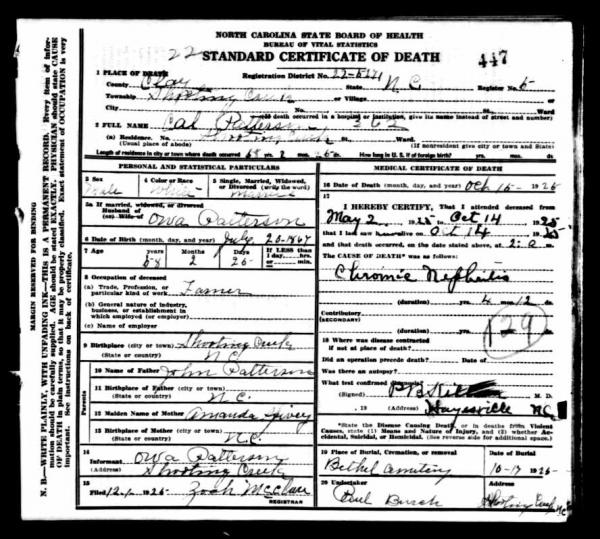 NORTH CAROLINA STATE BOARD OF HEALTH
BUREAU OF VITAL STATISTICS
22
STANDARD CERTIFICATE OF DEATH
447
1 PLACE OF DEATH
Registration District No. 22-
County Clay State N.C. Register No. 5-
Township Shooting Creek or Village
City No. St. Ward
(If death occurred in a hospital or institution, give its name instead of street and number)
2 FULL NAME Cal Patterson 362
(a) Residence. No. Shooting Creek St. Ward
(Usual place of abode) (If nonresident give city or town and State)
Length of residence in city or town where death occurred yrs. 2 mos. ds. How long in U. S. if of foreign birth? yrs. mos. ds.
PERSONAL AND STATISTICAL PARTICULARS
3 Sex
Male
4 Color or Race
White
5 Single, Married, Widowed,
or Divorced (write the word)
Married
5a If married, widowed, or divorced
Husband of
(or) Wife of Owa Patterson
6 Date of Birth (month, day, and year) July 20-1867
7 Age Years Months Days If LESS than
1 day, hrs.
or min.
58 2 25
8 Occupation of deceased
(a) Trade, Profession, or
particular kind of work Farmer
(b) General nature of industry,
business, or establishment in
which employed (or employer)
(c) Name of employer
9 Birthplace (city or town) Shooting Creek
(State or country) N.C.
Parents
10 Name of Father John Patterson
11 Birthplace of Father (city or town)
(State or country) N.C.
12 Maiden Name of Mother Amanda Ivey
13 Birthplace of Mother (city or town)
(State or country) N.C.
14
Informant Owa Patterson
(Address) Shooting Creek
15
Filed 12/1, 1925 Zosh McClure
REGISTRAR
MEDICAL CERTIFICATE OF DEATH
16 Date of Death (month, day, and year) Oct 15- 1925
17
I HEREBY CERTIFY, That I attended deceased from
May 2 1925 to Oct 14 1925
that I last saw h alive on Oct 14 1925
and that death occurred, on the date stated above, at 2: a m.
The CAUSE OF DEATH* was as follows:
Chromic Nephritis
(duration) yrs. 4 mos. 12 ds.
Contributory
(SECONDARY)
129
(duration) yrs. mos. ds.
18 Where was disease contracted
if not at place of death?
Did an operation precede death? Date of
Was there an autopsy?
What test confirmed diagnosis?
(Signed) M. D.
, 19 (Address) Hayesville N.C.
*State the Disease Causing Death, or in deaths from Violent
Causes, state (1) Means and Nature of Injury, and (2) whether Accidental, Suicidal, or Homicidal. (See reverse side for additional space.)
19 Place of Burial, Cremation, or Removal Date of Burial
Bethel Cemitery 10-17 1925
20 Undertaker Address
Paul Burch Shooting Creek NC
MARGIN RESERVED FOR BINDING
N. B.—WRITE PLAINLY, WITH UNFADING INK—THIS IS A PERMANENT RECORD. Every item of information should be carefully supplied. AGE should be stated EXACTLY. PHYSICIAN should state CAUSE OF DEATH in plain terms, so that it may be properly classified. Exact statement of OCCUPATION is very important. See instructions on back of certificate.